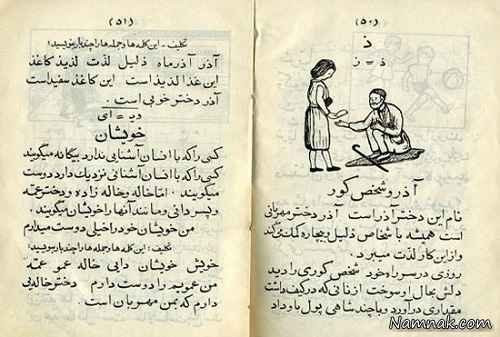 (۵۰)
ذ
ذ = ز
آذر و شخص کور
نام این دختر آذر است آذر دختر مهربانی
است همیشه با شخاص ذلیل و بیچاره کمک می کند
و از این کار لذت میبرد .
روزی در سر راه خود شخص کوری را دید
دلش بحال او سوخت از نانی که در کیف داشت
مقداری در آورد و با چند شاهی پول باو داد
(۵۱)
تکلیف - این کلمه ها و جمله ها را چند بار بنویسید :
آذر آذر ماه ذلیل لذت لذیذ کاغذ
این غذا لذیذ است این کاغذ سفید است
آذر دختر خوبی است .
خویشان
کسی را که با انسان آشنایی ندارد بیگانه میگویند
کسی را که با انسان آشنایی نزدیک دارد دوست
میگویند . اما خاله و خاله زاده و دختر عمّه
و پسر دائی و مانند آنها را خویشان میگویند .
من خویشان خود را خیلی دوست میدارم
تکلیف : این کلمه ها و جمله ها را چند بار بنویسید :
خویش خویشان دایی خاله عمو عمّه
من عمویم را دوست دارم دختر خاله یی
دارم که بمن مهربان است .
Namnak.com